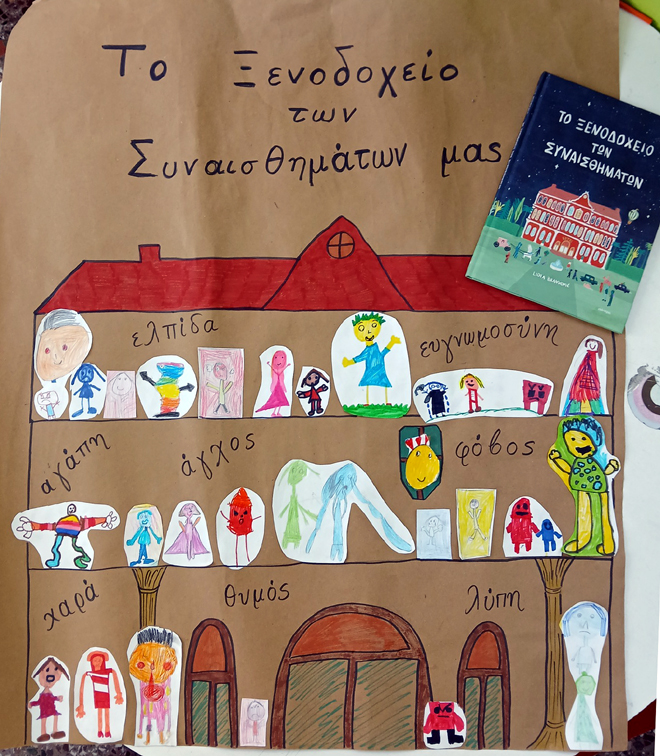 Το Ξενοδοχείο
των
Συναισθημάτων μας
ΤΟ ΞΕΝΟΔΟΧΕΙΟ
ΤΩΝ
ΣΥΝΑΙΣΘΗΜΑΤΩΝ
ελπίδα
ευγνωμοσύνη
αγάπη
άγχος
φόβος
χαρά
θυμός
λύπη